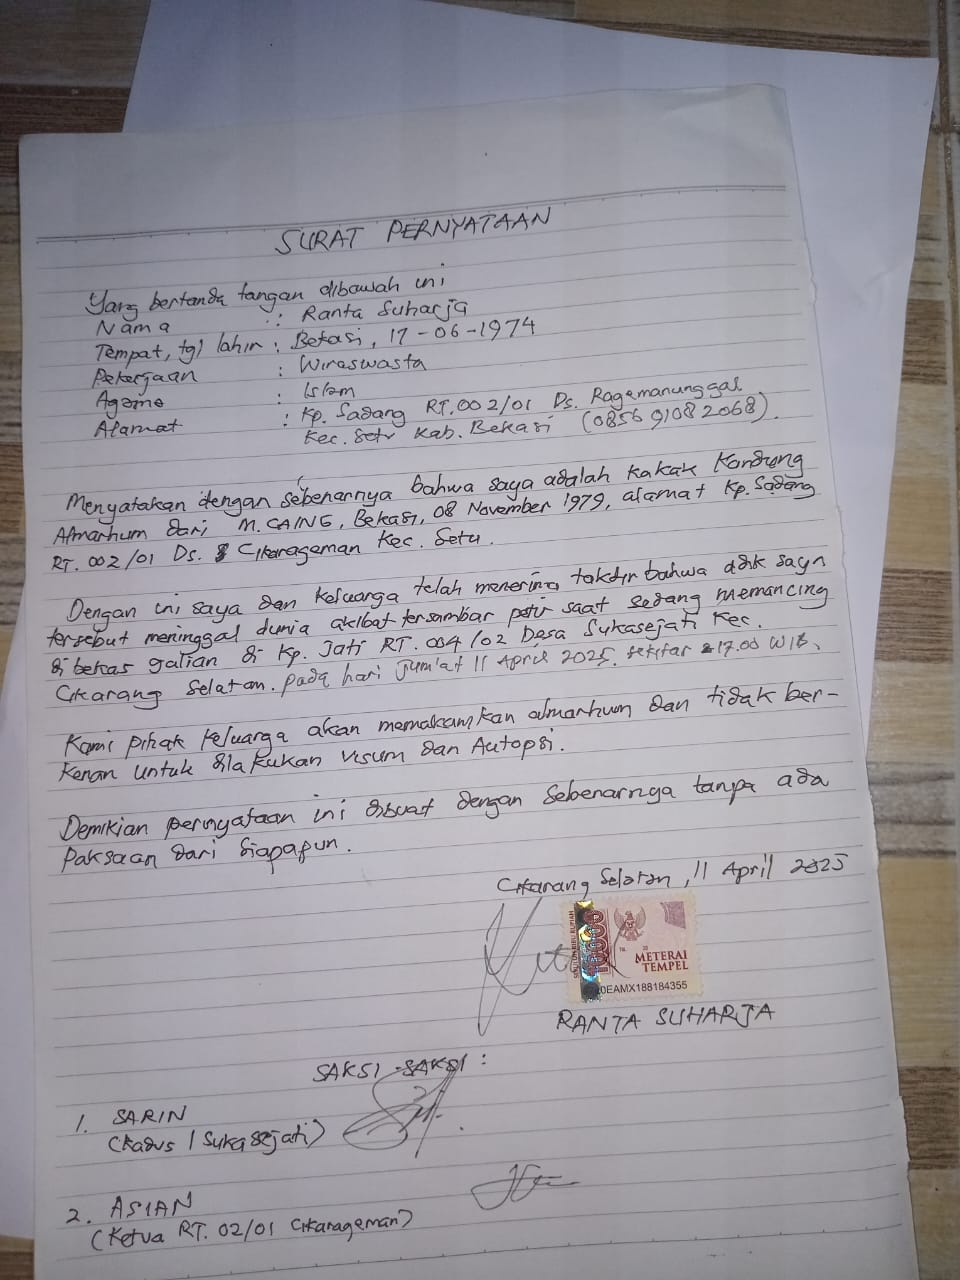 SURAT PERNYATAAN
Yang bertanda tangan dibawah ini
Nama : Ranta Suharja
Tempat, tgl lahir : Bekasi, 17-06-1974
Pekerjaan : Wiraswasta
Agama : Islam
Alamat : Kp. Sadang RT.002/01 Ds. Ragemanunggal
Kec. Setu Kab. Bekasi (085691082068).
Menyatakan dengan sebenarnya bahwa saya adalah kakak Kandung
Almarhum dari M. CAING, Bekasi, 08 November 1979, alamat Kp. Sadang
RT. 002/01 Ds. Cikarageman Kec. Setu.
Dengan ini saya dan keluarga telah menerima takdir bahwa adik saya
tersebut meninggal dunia akibat tersambar petir saat sedang memancing
di bekas galian di Kp. Jati RT. 004/02 Desa Sukasejati Kec.
Cikarang Selatan. pada hari Jum'at 11 April 2025. sekitar 17.00 WIB.
Kami pihak keluarga akan memakamkan almarhum dan tidak ber-
kenan untuk dilakukan visum dan Autopsi.
Demikian pernyataan ini dibuat dengan sebenarnya tanpa ada
paksaan dari siapapun.
Cikarang Selatan, 11 April 2025
10000
METERAI
TEMPEL
EAMX188184355
RANTA SUHARJA
SAKSI-SAKSI :
1. SARIN
(Kadus I Sukasejati)
2. ASIAN
(Ketua RT. 02/01 Cikarageman)